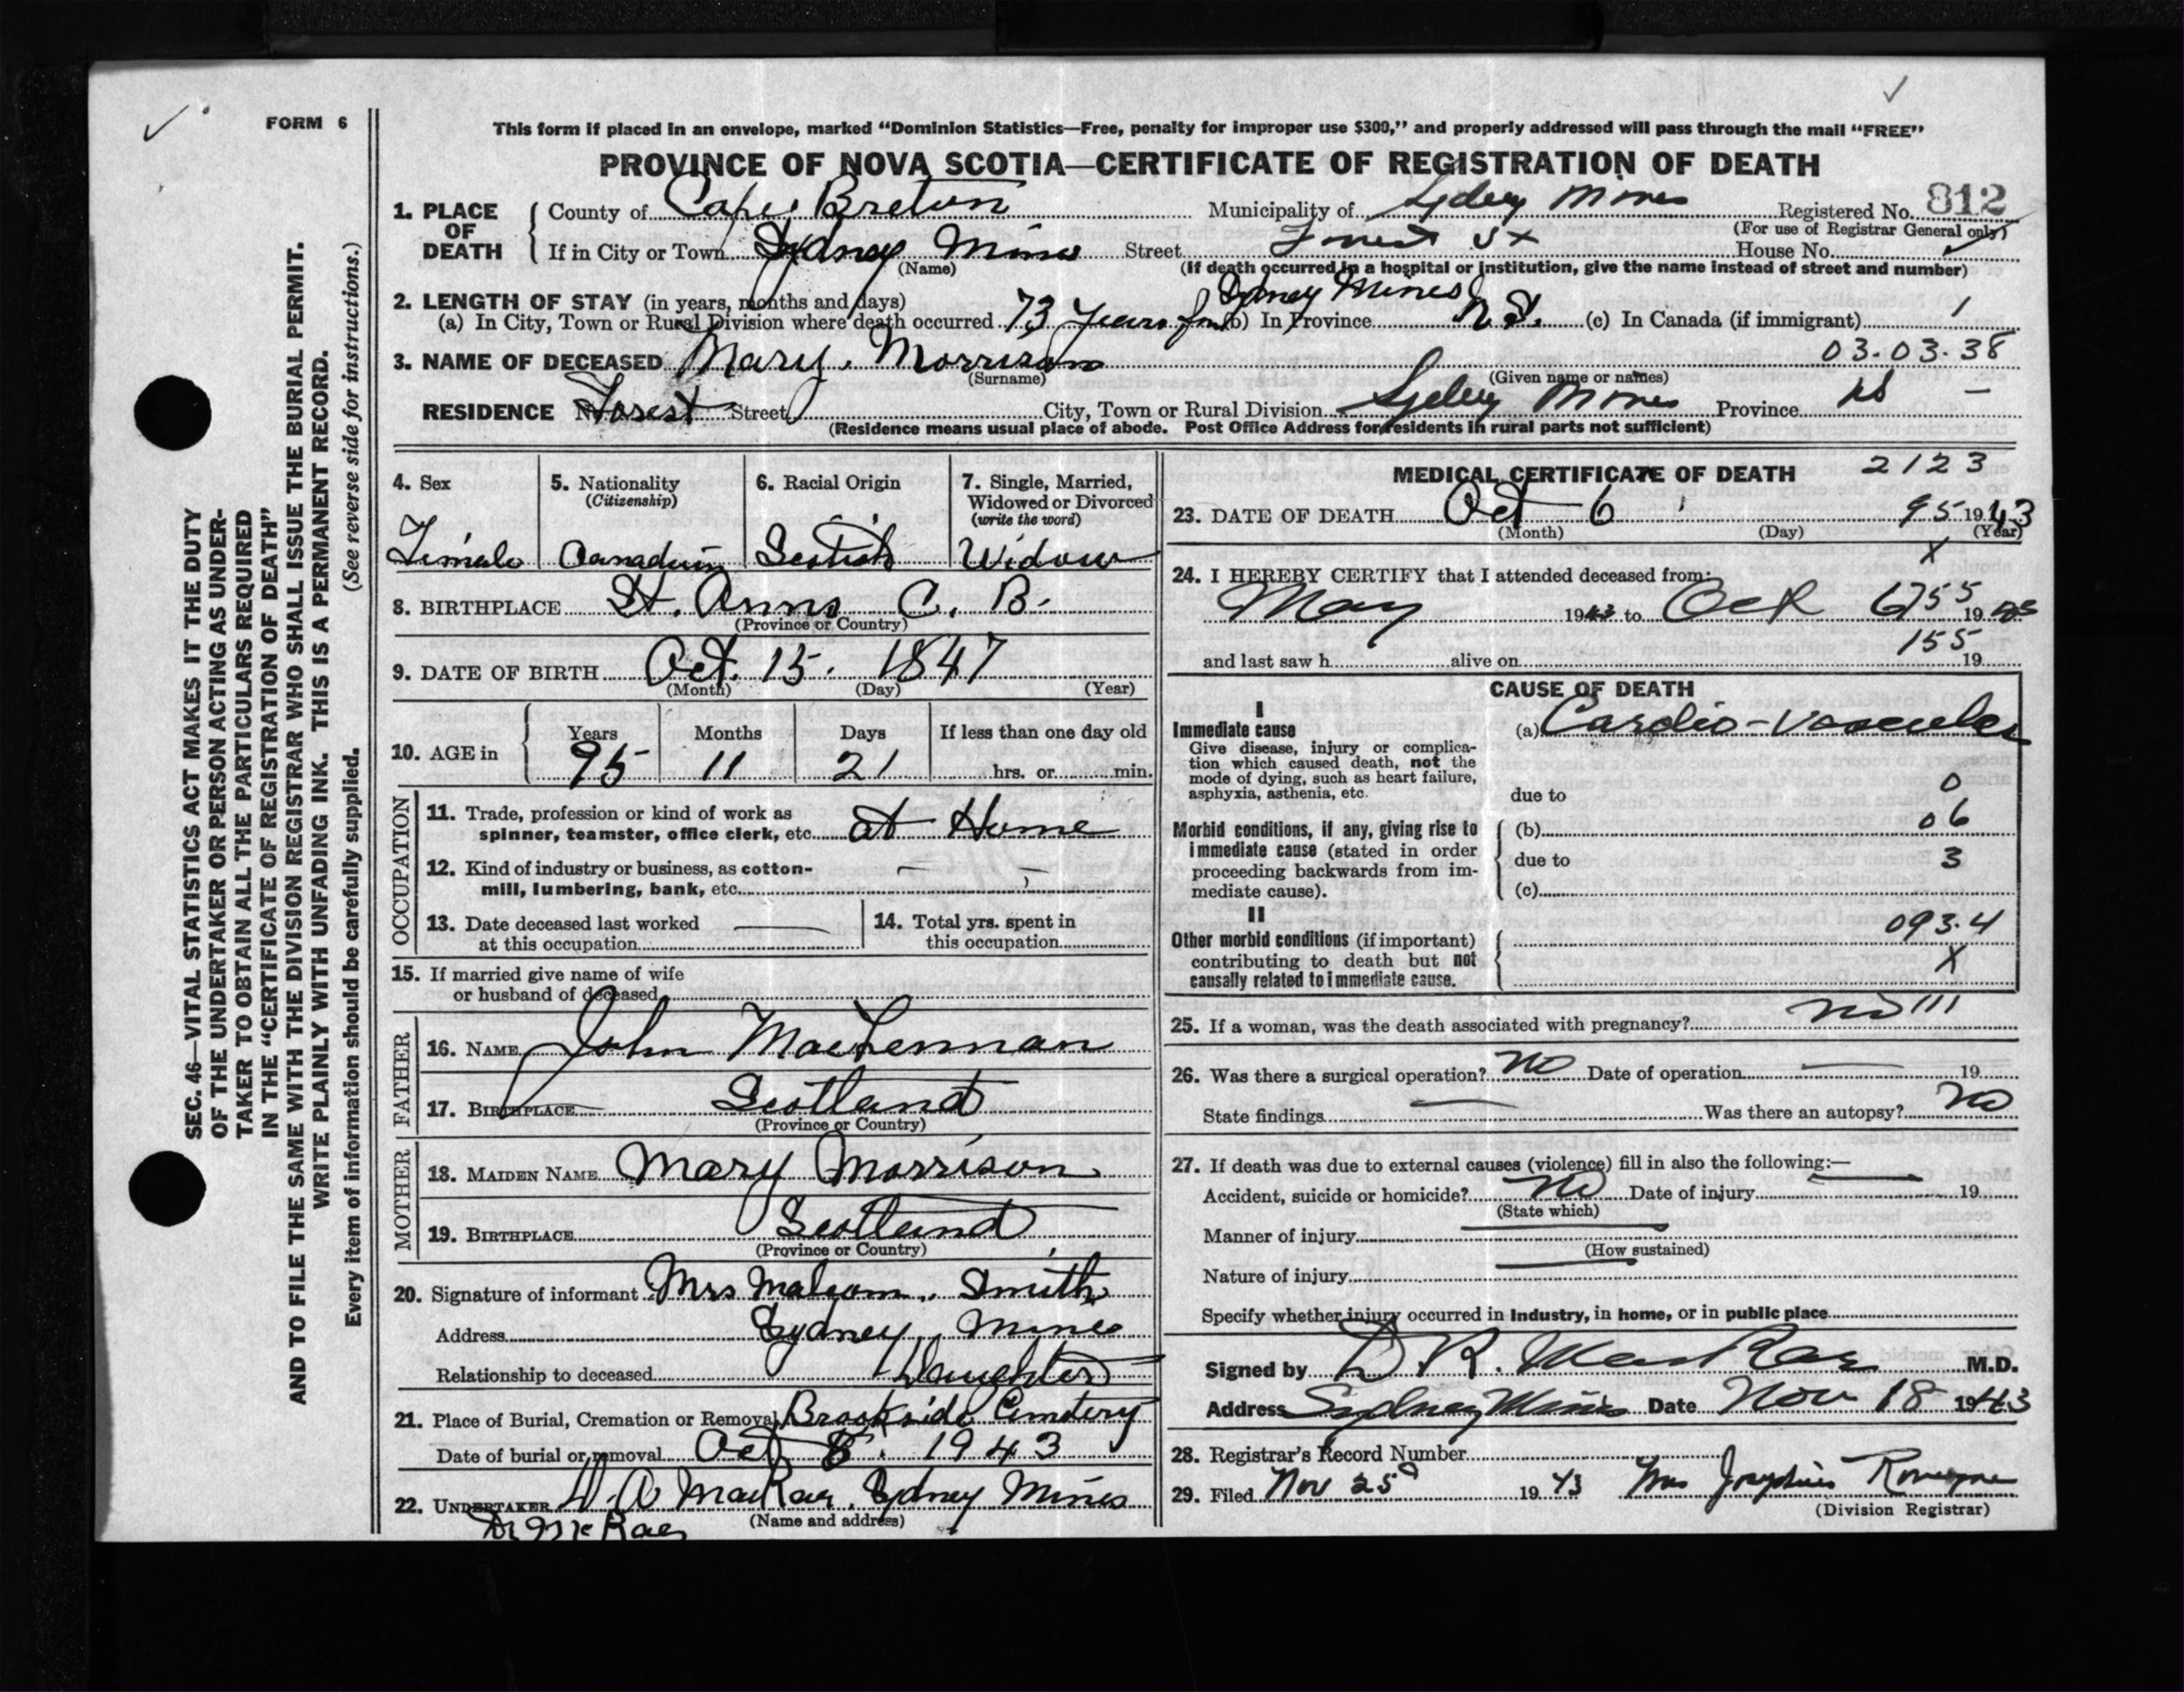 FORM 6
This form if placed in an envelope, marked “Dominion Statistics—Free, penalty for improper use $300,” and properly addressed will pass through the mail “FREE”
PROVINCE OF NOVA SCOTIA—CERTIFICATE OF REGISTRATION OF DEATH
1. PLACE OF DEATH
County of Cape Breton Municipality of Sydney Mines Registered No. 812
(For use of Registrar General only)
If in City or Town Sydney Mines Street Forrest St House No.
(Name) (If death occurred in a hospital or institution, give the name instead of street and number)
2. LENGTH OF STAY (in years, months and days) Sydney Mines
(a) In City, Town or Rural Division where death occurred 73 Years (b) In Province N.S. (c) In Canada (if immigrant) 1
03.03.38
3. NAME OF DECEASED Mary Morrison
(Surname) (Given name or names)
RESIDENCE No. Forest Street City, Town or Rural Division Sydney Mines Province NS —
(Residence means usual place of abode. Post Office Address for residents in rural parts not sufficient)
4. Sex 5. Nationality 6. Racial Origin 7. Single, Married,
(Citizenship) Widowed or Divorced
(write the word)
Female Canadian Scotish Widow
8. BIRTHPLACE St. Anns C. B.
(Province or Country)
9. DATE OF BIRTH Oct. 15. 1847
(Month) (Day) (Year)
10. AGE in Years Months Days If less than one day old
95 11 21 hrs. or min.
OCCUPATION
11. Trade, profession or kind of work as
spinner, teamster, office clerk, etc. at Home
12. Kind of industry or business, as cotton-
mill, lumbering, bank, etc. — —
13. Date deceased last worked —
at this occupation
14. Total yrs. spent in
this occupation
15. If married give name of wife
or husband of deceased
FATHER
16. NAME John MacLennan
17. BIRTHPLACE Scotland
(Province or Country)
MOTHER
18. MAIDEN NAME Mary Morrison
19. BIRTHPLACE Scotland
(Province or Country)
20. Signature of informant Mrs Malcom. Smith
Address Sydney Mines
Relationship to deceased Daughter
21. Place of Burial, Cremation or Removal Brookside Cemetery
Date of burial or removal Oct 8. 1943
22. UNDERTAKER A MacRae, Sydney Mines
(Name and address)
Dr McRae
MEDICAL CERTIFICATE OF DEATH 2123
23. DATE OF DEATH Oct 6 95 1943
(Month) (Day) (Year)
X
24. I HEREBY CERTIFY that I attended deceased from:
May 1943 to Oct 6 755 1943
155
and last saw h alive on 19
CAUSE OF DEATH
I
Immediate cause
Give disease, injury or complica-
tion which caused death, not the
mode of dying, such as heart failure,
asphyxia, asthenia, etc.
(a) Cardio-Vascular
due to 0
Morbid conditions, if any, giving rise to
immediate cause (stated in order
proceeding backwards from im-
mediate cause).
(b) 06
due to 3
(c)
II
Other morbid conditions (if important)
contributing to death but not
causally related to immediate cause.
093.4
X
25. If a woman, was the death associated with pregnancy? no 111
26. Was there a surgical operation? no Date of operation — 19
State findings — Was there an autopsy? no
27. If death was due to external causes (violence) fill in also the following:—
Accident, suicide or homicide? No Date of injury — 19
(State which)
Manner of injury
(How sustained)
Nature of injury
Specify whether injury occurred in industry, in home, or in public place
Signed by D. R. MacRae M.D.
Address Sydney Mines Date Nov 18 1943
28. Registrar's Record Number
29. Filed Nov 25 1943 Mrs Josephine
(Division Registrar)
SEC. 46—VITAL STATISTICS ACT MAKES IT THE DUTY
OF THE UNDERTAKER OR PERSON ACTING AS UNDER-
TAKER TO OBTAIN ALL THE PARTICULARS REQUIRED
IN THE “CERTIFICATE OF REGISTRATION OF DEATH”
AND TO FILE THE SAME WITH THE DIVISION REGISTRAR WHO SHALL ISSUE THE BURIAL PERMIT.
WRITE PLAINLY WITH UNFADING INK. THIS IS A PERMANENT RECORD.
Every item of information should be carefully supplied. (See reverse side for instructions.)